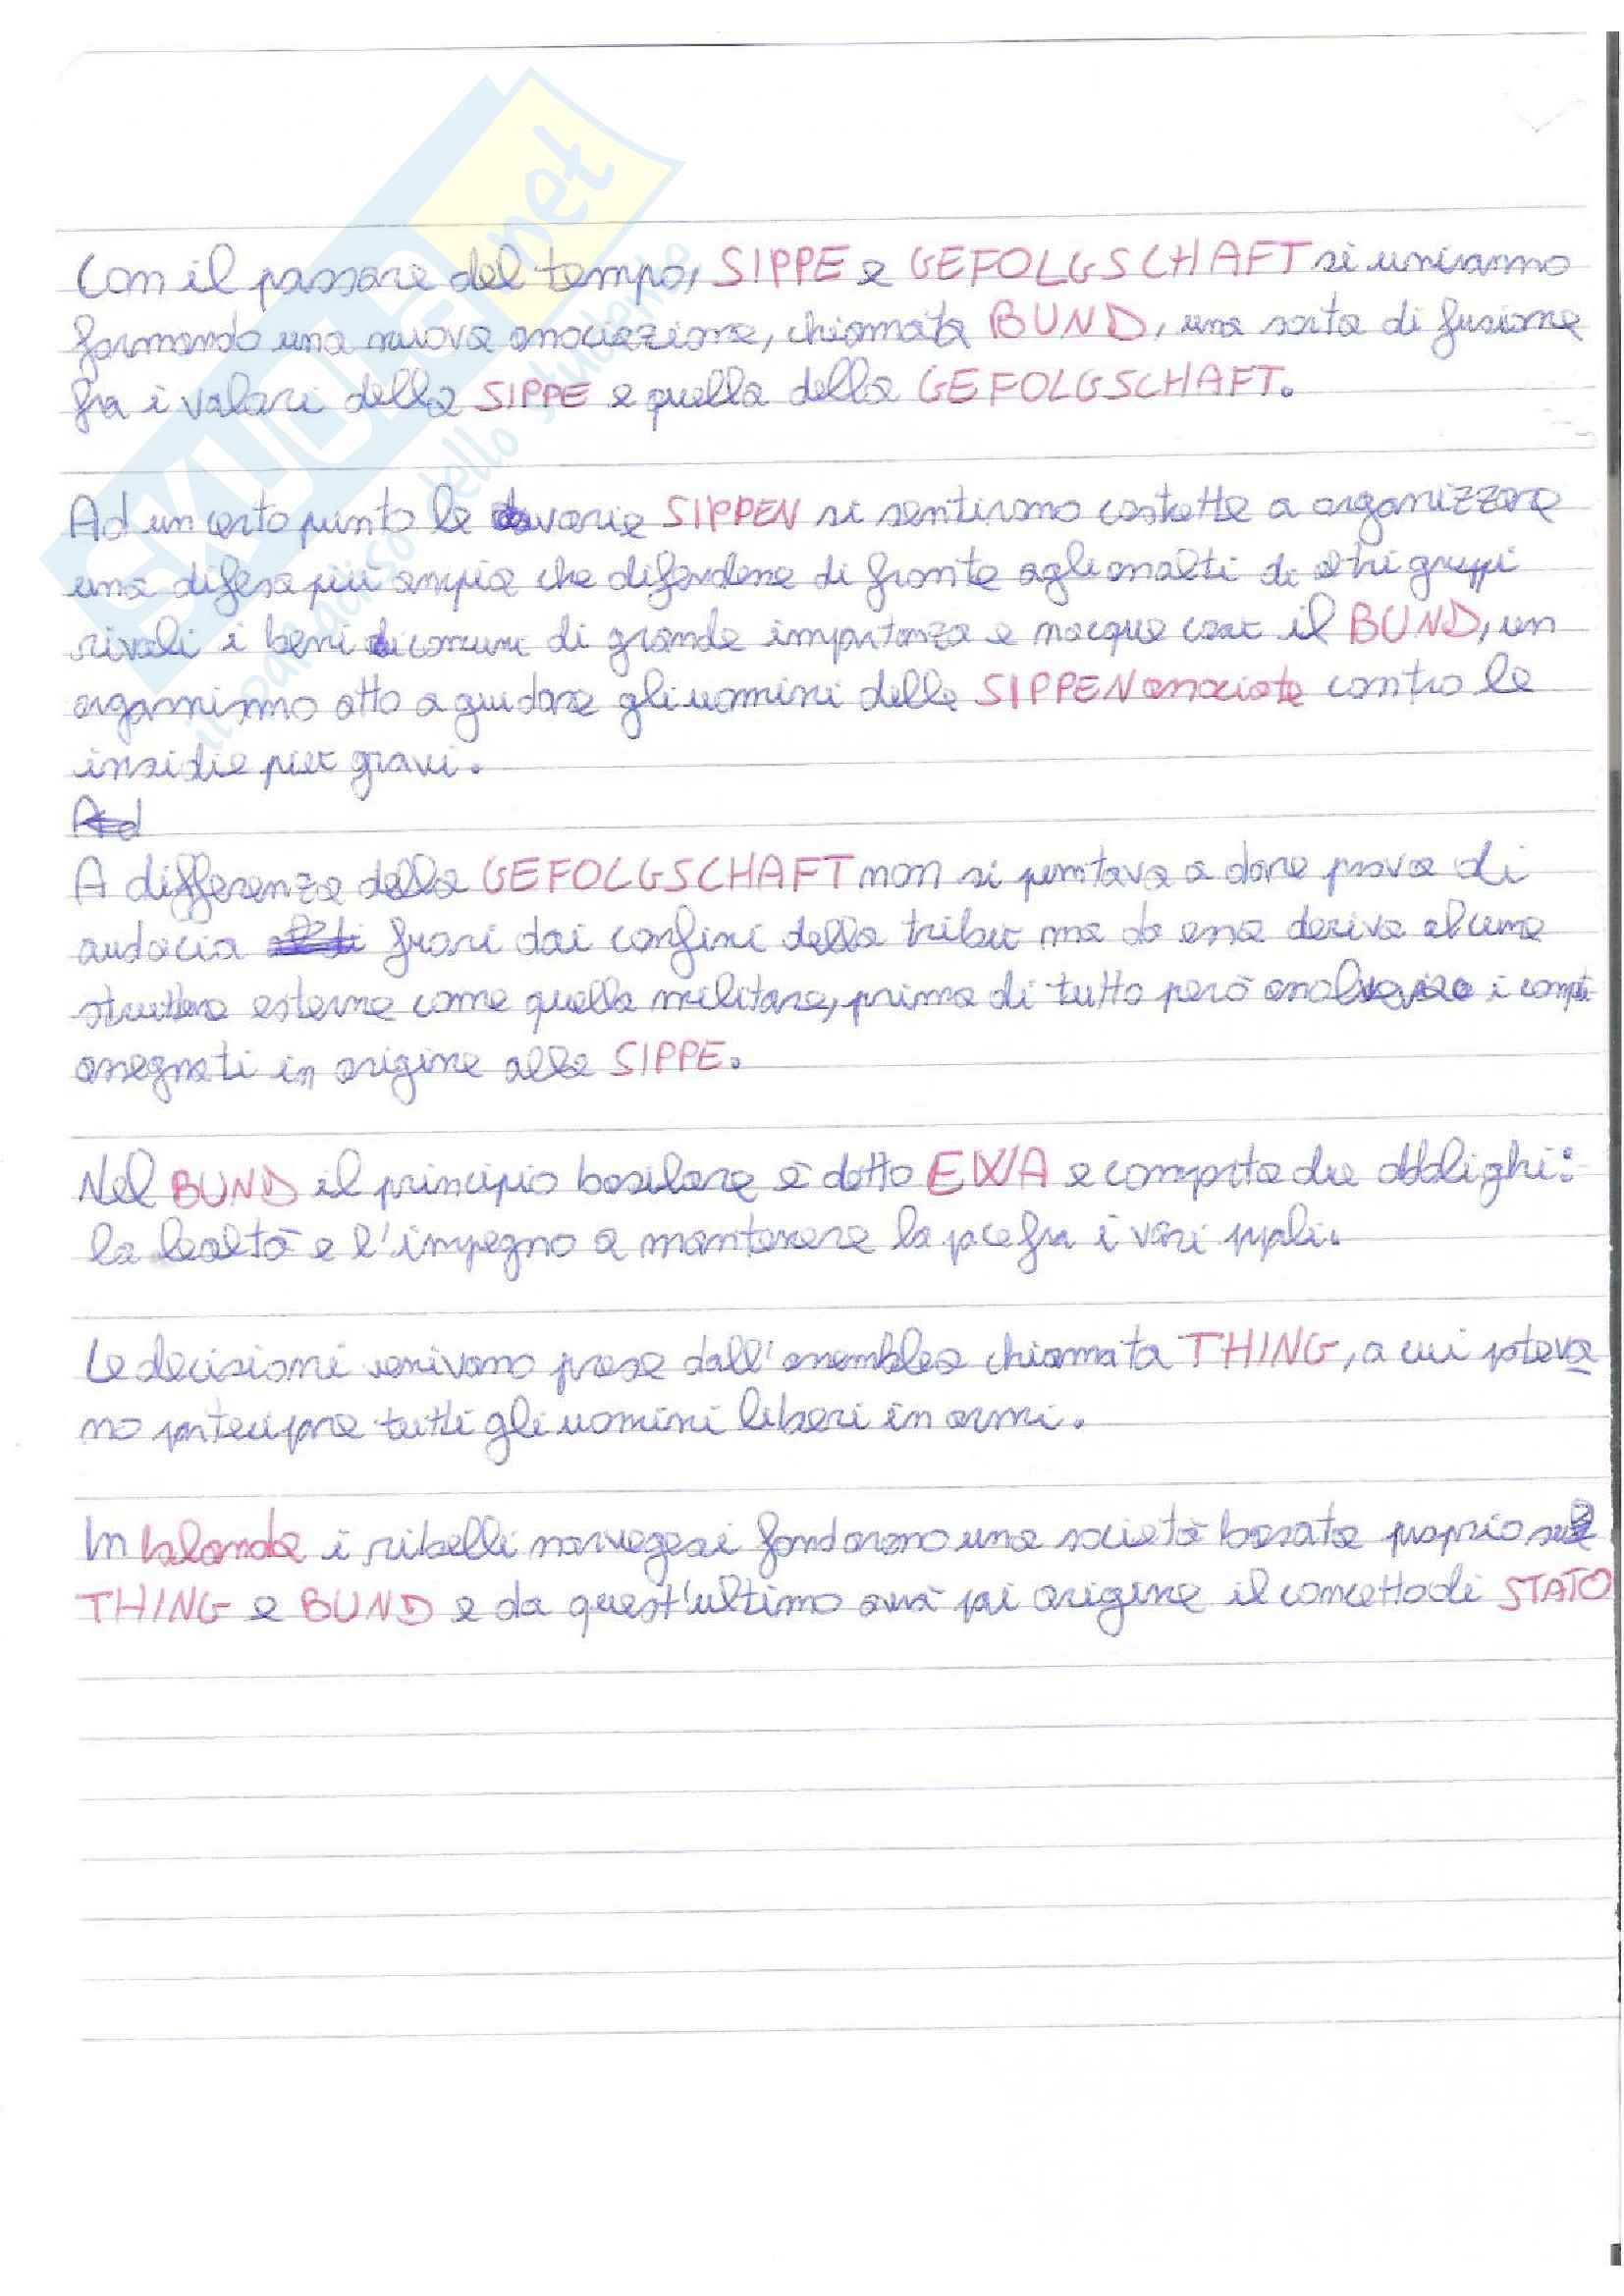 Con il passare del tempo, SIPPE e GEFOLGSCHAFT si uniranno
formando una nuova associazione, chiamata BUND, una sorta di fusione
fra i valori della SIPPE e quella della GEFOLGSCHAFT.
Ad un certo punto le varie SIPPEN si sentirono costrette a organizzare
una difesa più ampia che difendesse di fronte agli assalti di altri gruppi
rivali i beni comuni di grande importanza e nacque così il BUND, un
organismo atto a guidare gli uomini delle SIPPEN associate contro le
insidie più gravi.
Ad
A differenza della GEFOLGSCHAFT non si puntava a dare prova di
audacia fuori dai confini della tribù ma da essa deriva alcune
strutture esterne come quella militare, prima di tutto però assolveva i compiti
assegnati in origine alla SIPPE.
Nel BUND il principio basilare è detto EWA e comporta due obblighi:
la lealtà e l'impegno a mantenere la pace fra i vari popoli.
Le decisioni venivano prese dall'assemblea chiamata THING, a cui poteva
no partecipare tutti gli uomini liberi in armi.
In Islanda i ribelli norvegesi fondarono una società basata proprio su
THING e BUND e da quest'ultimo avrà poi origine il concetto di STATO
SKUOLA.net
il paradiso dello studente